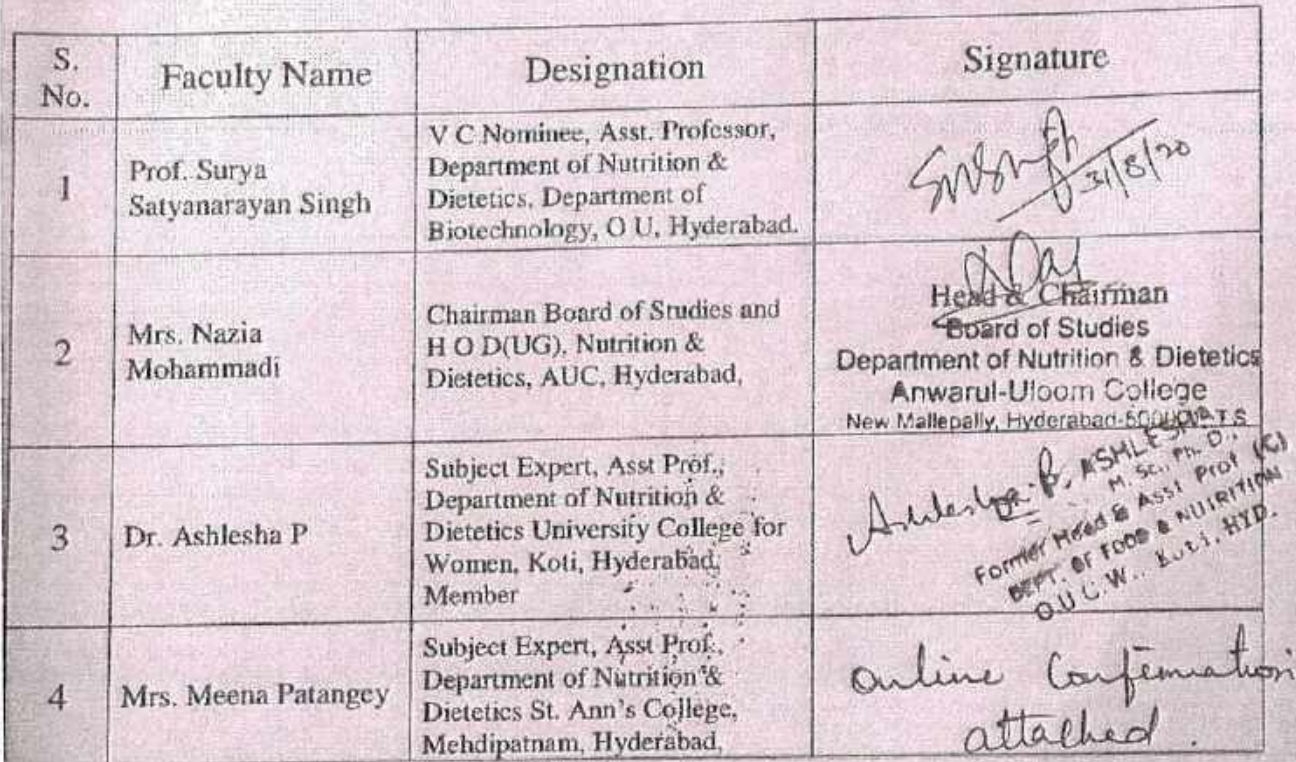 S.
No.
Faculty Name
Designation
Signature
1
Prof. Surya
Satyanarayan Singh
V C Nominee, Asst. Professor,
Department of Nutrition &
Dietetics, Department of
Biotechnology, O U, Hyderabad.
31/8/20
2
Mrs. Nazia
Mohammadi
Chairman Board of Studies and
H O D(UG), Nutrition &
Dietetics, AUC, Hyderabad,
Head & Chairman
Board of Studies
Department of Nutrition & Dietetics
Anwarul-Uloom College
New Mallepally, Hyderabad-
3
Dr. Ashlesha P
Subject Expert, Asst Prof.,
Department of Nutrition &
Dietetics University College for
Women, Koti, Hyderabad,
Member
M. Sc., Ph. D.,
Former Head & Asst Prof (C)
DEPT. OF FOOD & NUTRITION
O.U.C.W., Koti, HYD.
4
Mrs. Meena Patangey
Subject Expert, Asst Prof.,
Department of Nutrition &
Dietetics St. Ann's College,
Mehdipatnam, Hyderabad,
Online Confirmation
attached.